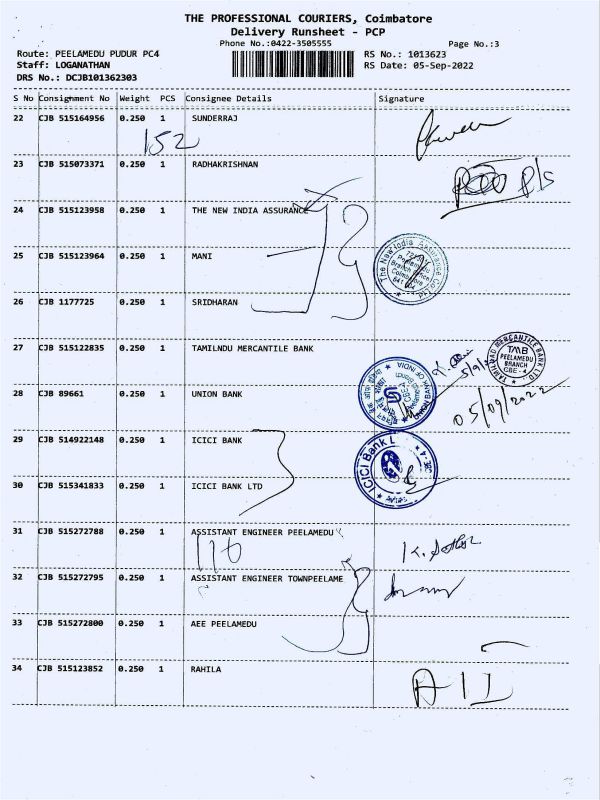 THE PROFESSIONAL COURIERS, Coimbatore
Delivery Runsheet - PCP
Phone No.:0422-3505555
Page No.:3
Route: PEELAMEDU PUDUR PC4
RS No.: 1013623
Staff: LOGANATHAN
RS Date: 05-Sep-2022
DRS No.: DCJB101362303
S No Consignment No Weight PCS Consignee Details Signature
22 CJB 515164956 0.250 1 SUNDERRAJ
152
23 CJB 515073371 0.250 1 RADHAKRISHNAN
P/S
24 CJB 515123958 0.250 1 THE NEW INDIA ASSURANCE
25 CJB 515123964 0.250 1 MANI
The New India Assurance Co Ltd
Peelamedu
Branch Office
Coimbatore
641 004
26 CJB 1177725 0.250 1 SRIDHARAN
27 CJB 515122835 0.250 1 TAMILNDU MERCANTILE BANK
TAMILNAD MERCANTILE BANK LTD.
TMB
PEELAMEDU
BRANCH
CBE - 4
28 CJB 89661 0.250 1 UNION BANK
UNION BANK OF INDIA
05/09/2022
29 CJB 514922148 0.250 1 ICICI BANK
ICICI Bank L
30 CJB 515341833 0.250 1 ICICI BANK LTD
31 CJB 515272788 0.250 1 ASSISTANT ENGINEER PEELAMEDU
116
K.
32 CJB 515272795 0.250 1 ASSISTANT ENGINEER TOWNPEELAME
33 CJB 515272800 0.250 1 AEE PEELAMEDU
34 CJB 515123852 0.250 1 RAHILA